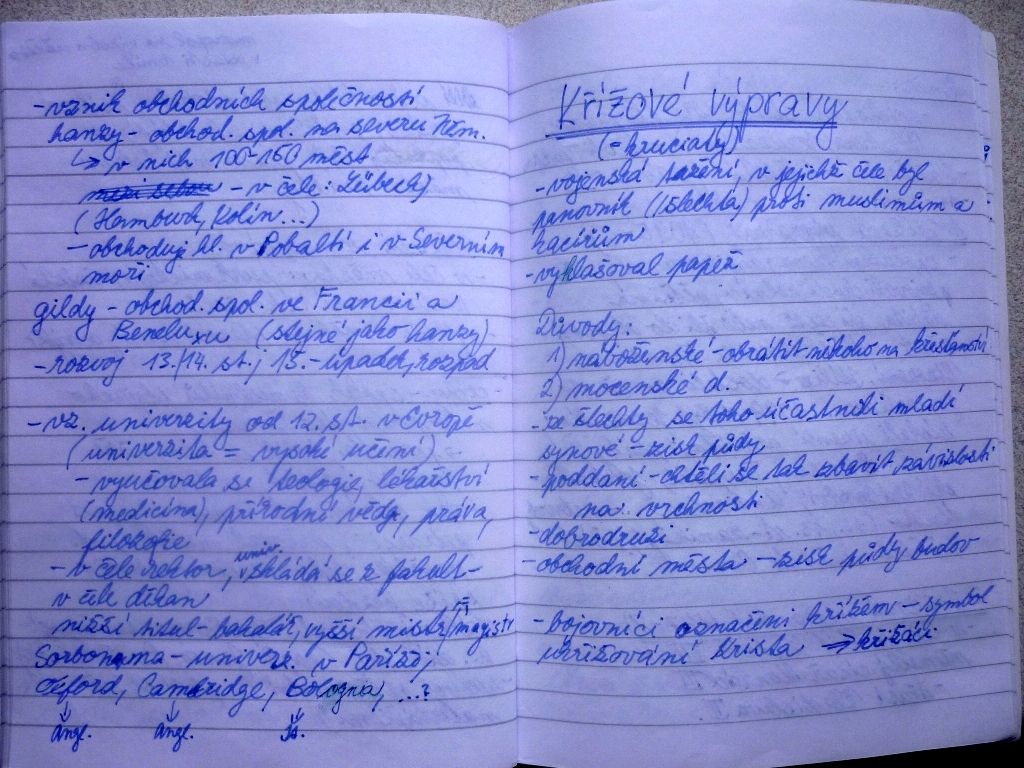 -vznik obchodních společností
hanzy - obchod. spol. na severu Něm.
↳ v nich 100-150 měst
- v čele: Lübech)
(Hamburh, Kolín...)
- obchodují hl. v Pobaltí i v Severním
moři
gildy - obchod. spol. ve Francii a
Beneluxu (stejné jako hanzy)
- rozvoj 13./14. st., 15. - úpadek, rozpad
- vz. univerzity od 12. st. v Evropě
(univerzita = vysoké učení)
- vyučovala se teologie, lékařství
(medicína), přírodní vědy, práva,
filozofie
- v čele rektor, univ. skládá se z fakult -
v čele děkan
nižší titul - bakalář, vyšší mistr/magistr
- univerz. v Paříži,
Oxford, Cambridge, Bologna, ...?
angl. angl. It.
Křížové výpravy
(= kruciaty)
- vojenská tažení, v jejichž čele byl
panovník (/šlechta) proti muslimům a
kacířům
- vyhlašoval papež
Důvody:
1) náboženské - obrátit někoho na křesťanství
2) mocenské d.
- ze šlechty se toho účastnili mladí
synové - zisk půdy
- poddaní - chtěli se tak zbavit závislosti
na vrchnosti
- dobrodruzi
- obchodní města - zisk půdy budov
- bojovníci označeni křížem - symbol
ukřižování Krista → křižáci